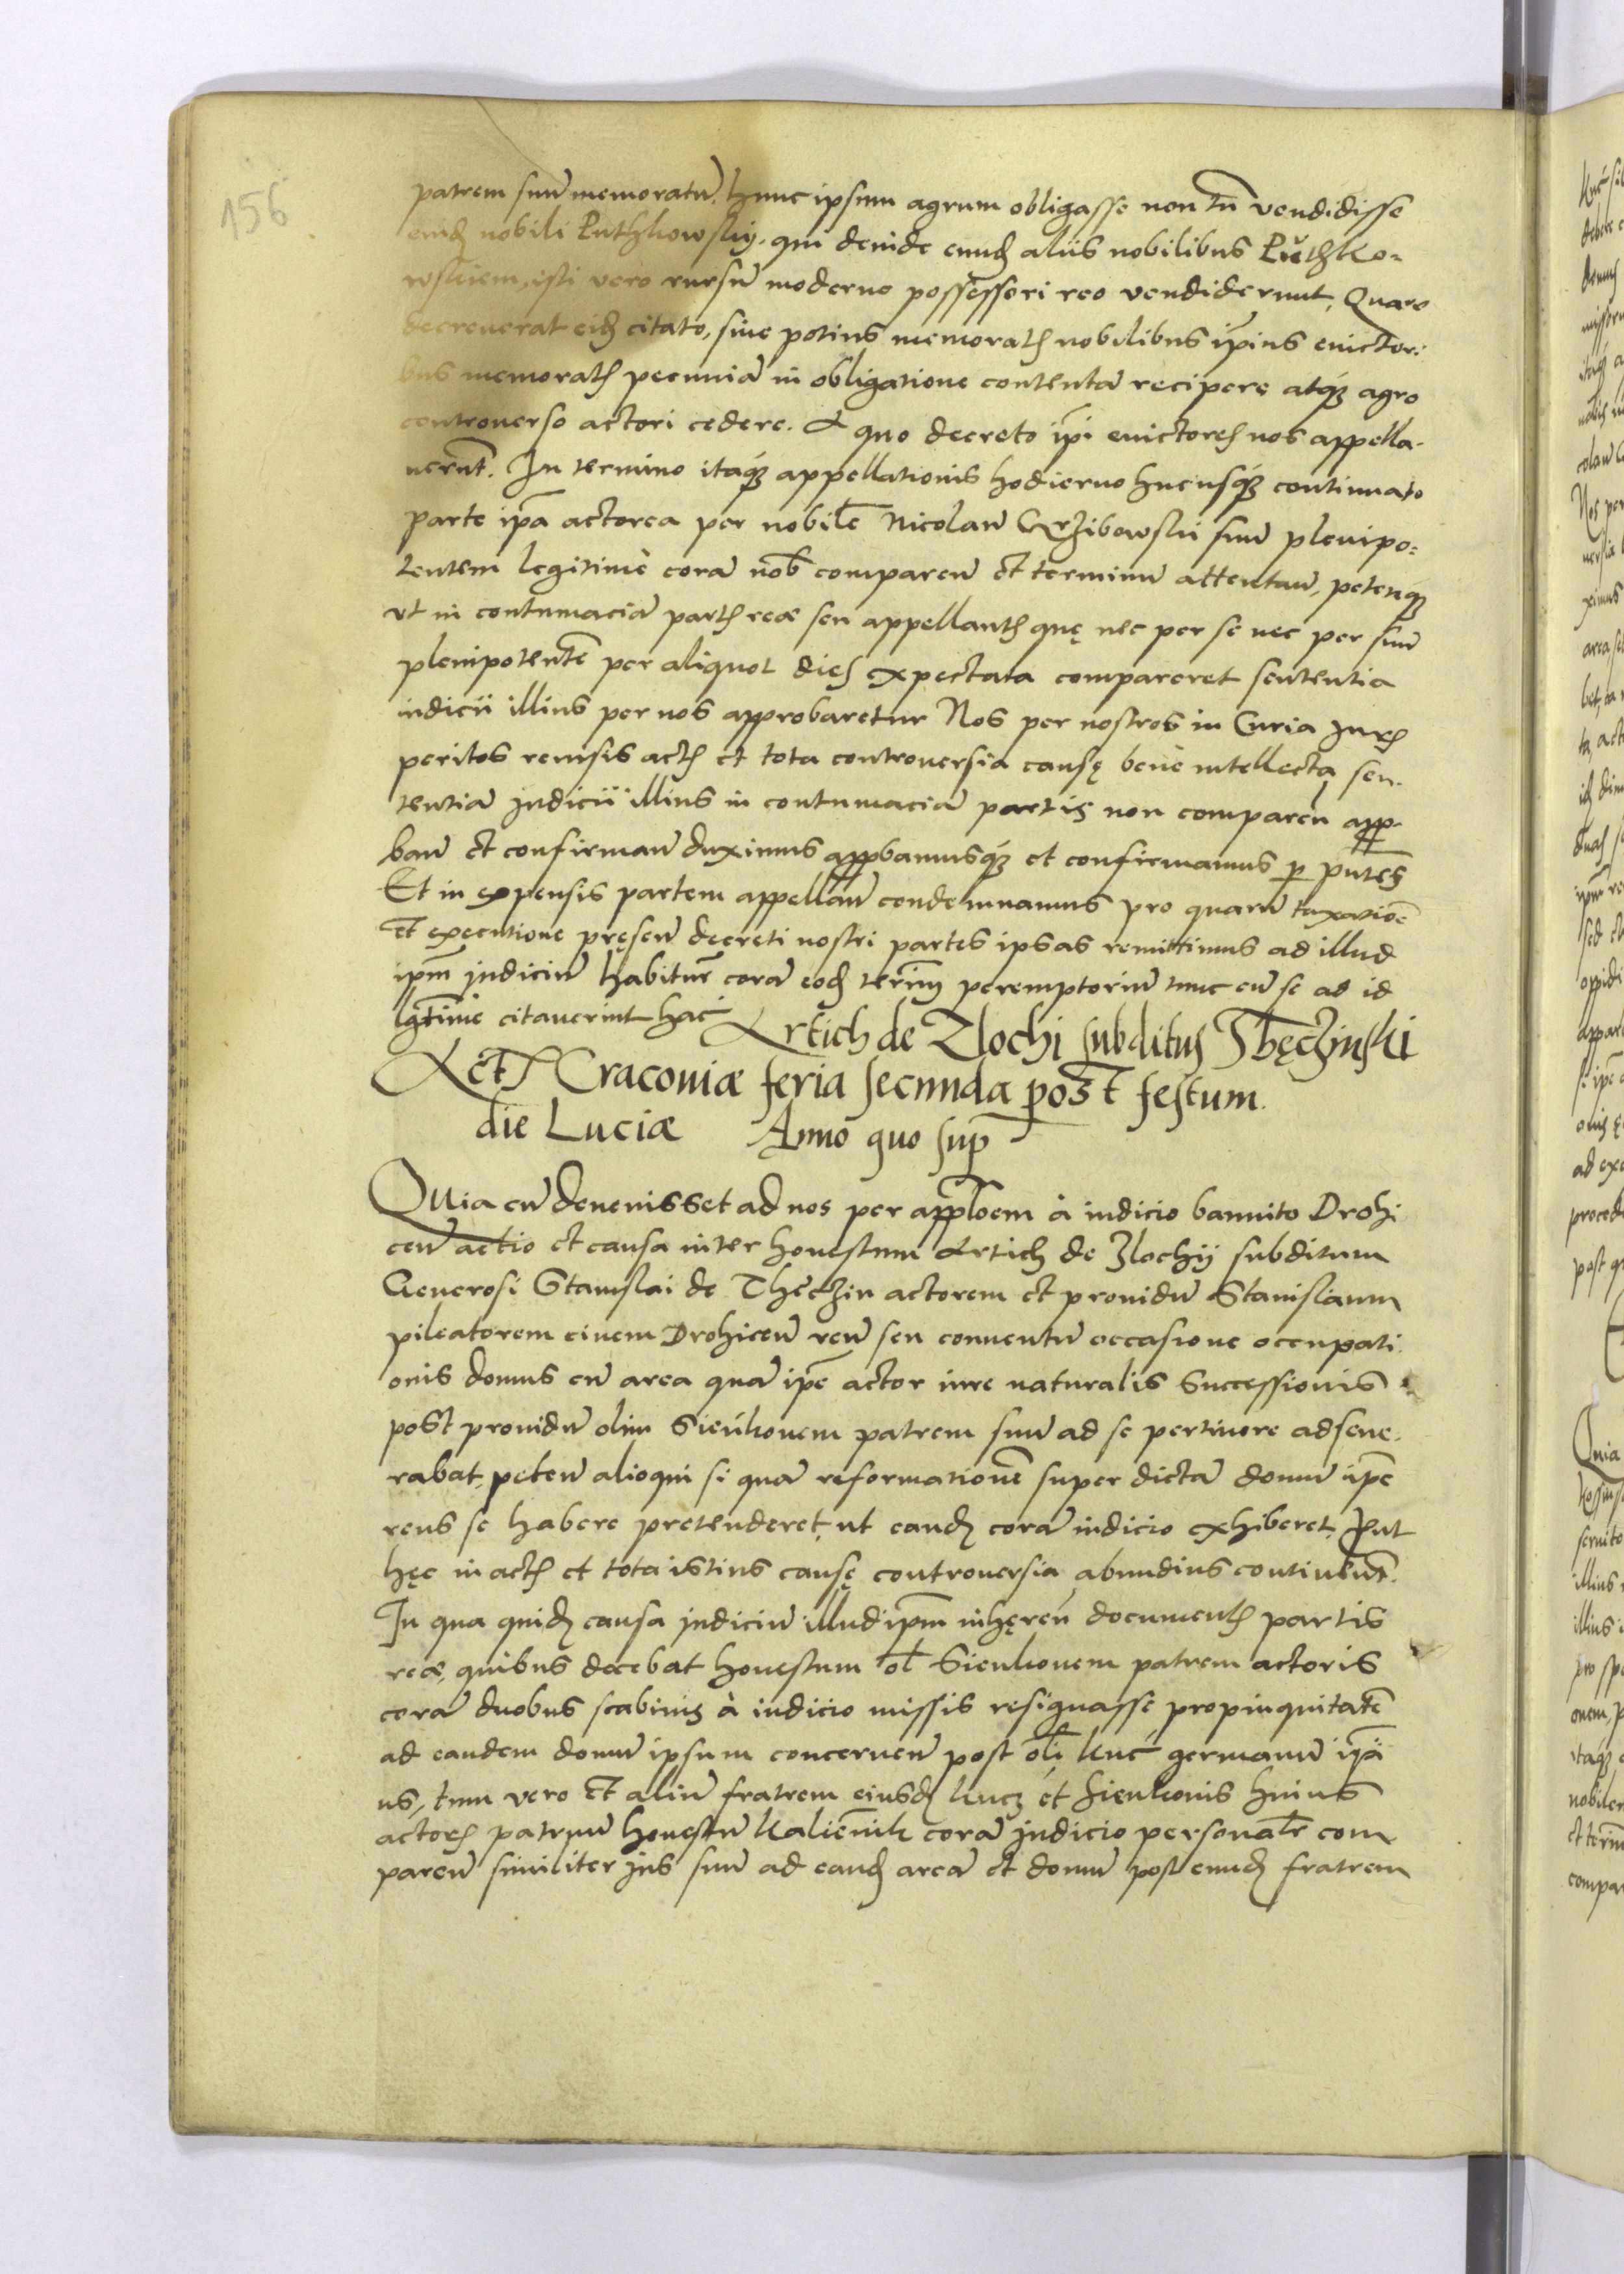 156
patrem suū memoratū. hunc ipsum agrum obligasse non tn̄ vendidisse
eiuꝫ nobili Puthkowskij, qui deinde eundꝫ aliis nobilibus Puthko-
wskiem, isti vero rursū moderno possessori reo vendiderunt, Quare
decreuerat eidꝫ citato, siue potius memoratꝭ nobilibus ip̄ius euictori:
bus memoratꝭ pecuniā in obligatione contentā recipere atqꝫ agro
controuerso actori cedere. A quo decreto ip̄i euictores nos appella-
uerūt. In termino itaqꝫ appellationis hodierno hucusqꝫ continuato
parte ip̄a actorea per nobilē Nicolaū Grzibowski suū plenipo:
tentem legitimè corā nob̄ comparen̄ et terminū attentan̄, petenqꝫ
vt in contumaciā partꝭ reæ seu appellantꝭ quę nec per se nec per suū
plenipotentē per aliquot dies expectata compareret sententia
iudicii illius per nos approbaretur Nos per nostros in Curia Iurꝭ
peritos reuisis actꝭ et tota controuersia causę benè intellecta, sen-
tentiā judicii illius in contumaciā partis non comparen̄ app̲-
ban̄ et confirman̄ duximus app̲bamusqꝫ et confirmamus p̲ pn̄tes
Et in expensis partem appellan̄ condemnamus pro quarū taxatiōe
et executione pręsen̄ decreti nostri partes ipsas remittimus ad illud
ip̄m judiciū habitur̄ corā eodꝫ termī peremptoriū tunc cū se ad id
lgtīme citauerint hac
Artich de Zlochi subditus Thęczinski
Actꝭ Cracouiæ feria secunda post festum
die Luciæ Anno quo sup̲
QUia cū deuenisset ad nos per app̄loem à iudicio bannito Drohi
cen̄ actio et causa inter honestum Artich de Zlochij subditum
Generosi Stanislai de Theczin actorem et prouidū Stanislaum
pileatorem ciuem Drohicen̄ reū seu conuentū occasione occupati-
onis domus cū area quā ip̄e actor iure naturalis Successionis
post prouidū olim Sieńkonem patrem suū ad se pertinere adseue-
rabat, peten̄ alioqui si quā reformationē super dictā domū ip̄e
reus se habere pretenderet, ut eandꝫ corā iudicio exhiberet, Prut
hęc in actꝭ et tota istius causę controuersia abundius continēnt.
In qua quidꝫ causa judiciū illud ip̄m inhęren̄ documentꝭ partis
reæ, quibus docebat honestum ol̄ Sienkonem patrem actoris
corā duobus scabinis à iudicio missis resignasse propinquitatē
ad eandem domū ipsum concernen̄ post oli Kuc germanū ip̄i
us, tum vero et aliū fratrem eiusdꝫ Kucz et Sienkonis huius
actorꝭ patruū honestū Kalienik corā judicio personalr̄ com
paren̄ similiter jus suū ad eandꝫ areā et domū post eundꝫ fratrem